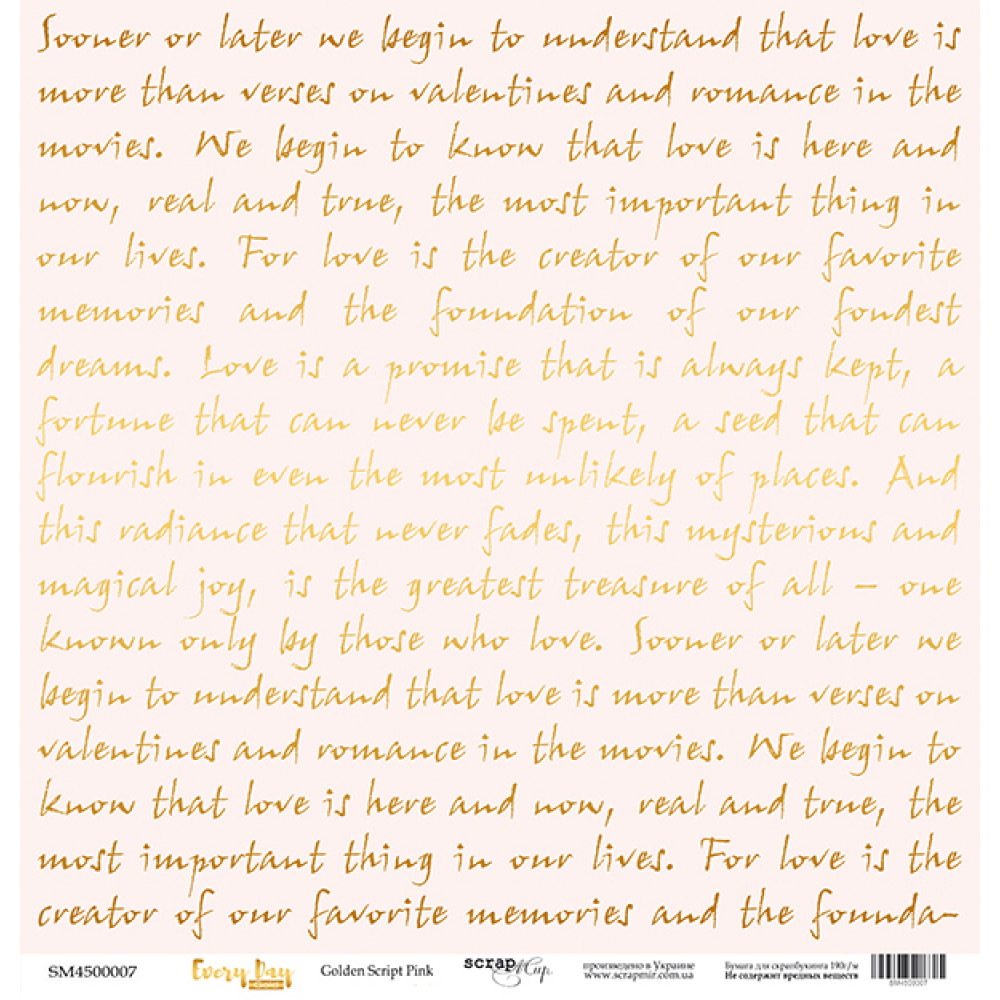 Sooner or later we begin to understand that love is
more than verses on valentines and romance in the
movies. We begin to know that love is here and
now, real and true, the most important thing in
our lives. For love is the creator of our favorite
memories and the foundation of our fondest
dreams. Love is a promise that is always kept, a
fortune that can never be spent, a seed that can
flourish in even the most unlikely of places. And
this radiance that never fades, this mysterious and
magical joy, is the greatest treasure of all – one
known only by those who love. Sooner or later we
begin to understand that love is more than verses on
valentines and romance in the movies. We begin to
know that love is here and now, real and true, the
most important thing in our lives. For love is the
creator of our favorite memories and the founda-
SM4500007 Every Day Golden Script Pink scrap Мир произведено в Украине Бумага для скрапбукинга 190г/м
www.scrapmir.com.ua Не содержит вредных веществ
SM4500007